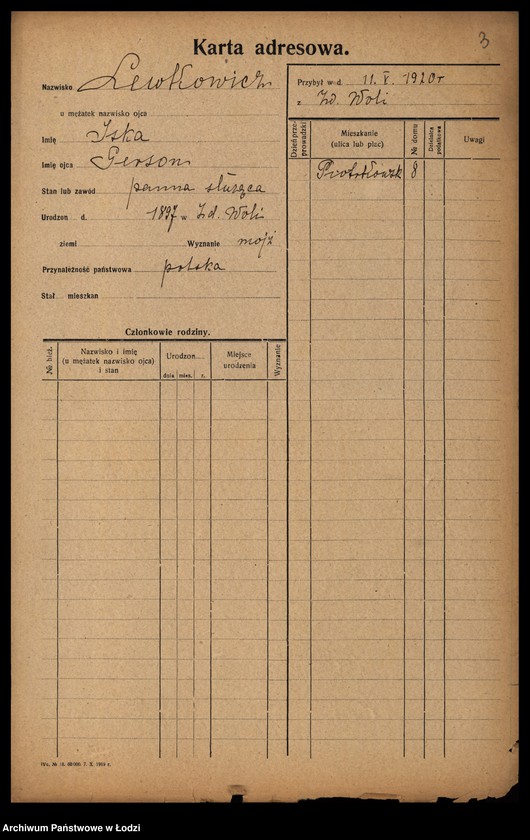 3
Karta adresowa.
Nazwisko Lewkowicz
u mężatek nazwisko ojca
Imię Iska
Imię ojca Gerson
Stan lub zawód panna służąca
Urodzon d. 1897 w Zd. Woli
ziemi Wyznanie mojż
Przynależność państwowa polska
Stał. mieszkan
Przybył w d. 11. V. 1920 r
z Zd. Woli
Dzień prze-prowadzki
Mieszkanie
(ulica lub plac)
№ domu
Dzielnica podatkowa
Uwagi
Piotrkowsk 8
Członkowie rodziny.
№ bież.
Nazwisko i imię
(u mężatek nazwisko ojca)
i stan
Urodzon....
dnia mies. r.
Miejsce
urodzenia
Wyznanie
7. X. 1919 r.
Archiwum Państwowe w Łodzi